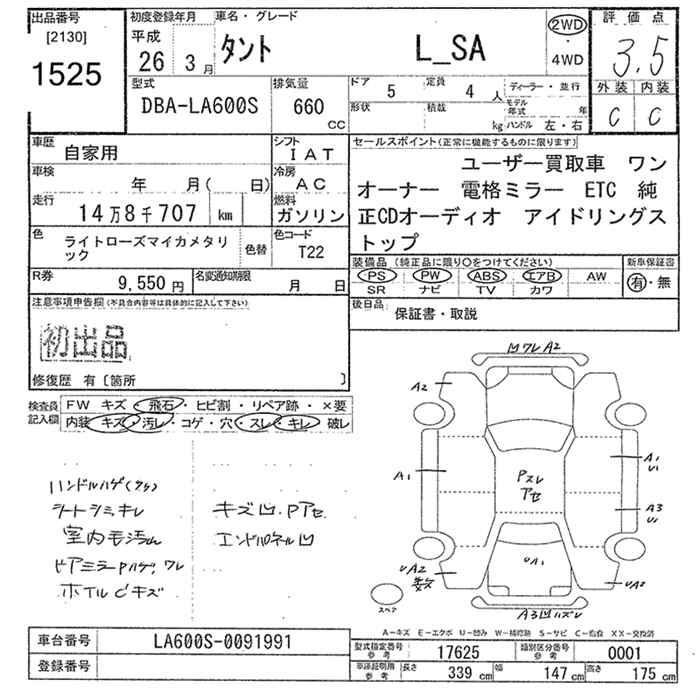 出品番号
[2130]
1525
初度登録年月
平成
26 3月
車名・グレード
タント L_SA
2WD
・
4WD
評価点
3.5
外装 内装
C C
型式
DBA-LA600S
排気量
660
CC
ドア 5 定員 4 人
形状 積載 kg
ディーラー・並行
モデル年式 年
ハンドル 左・右
車歴 自家用
シフト IAT
車検 年 月( 日)
冷房 AC
走行 14万8千707 km
燃料 ガソリン
色 ライトローズマイカメタリック
色替
色コード T22
R券 9,550 円
名変通知期限 月 日
セールスポイント(正常に機能するものに限ります)
ユーザー買取車 ワン
オーナー 電格ミラー ETC 純
正CDオーディオ アイドリングス
トップ
装備品(純正品に限り○をつけてください)
PS PW ABS エアB AW
SR ナビ TV カワ
新車保証書
有・無
後日品 保証書・取説
注意事項申告欄(不具合内容等は具体的に記入して下さい)
初出品
修復歴 有〔箇所 〕
検査員記入欄
FW キズ・飛石・ヒビ割・リペア跡・×要
内装 キズ・汚レ・コゲ・穴・スレ・キレ・破レ
シートシミキレ
室内モ汚れ
ドアミラーPハゲ、ワレ
ホイルCキズ
キズ凹、Pアセ
エンドパネル凹
凹ワレA2
A2
A1
A1
U1
A3
U1
Pスレ
アセ
UA1
UA2
UA2
A3凹ハズレ
スペア
A-キズ E-エクボ U-凹み W-補修跡 S-サビ C-腐食 XX-交換済
車台番号 LA600S-0091991
登録番号
型式指定番号 参考 17625
類別区分番号 参考 0001
車庫証明用 参考
長さ 339 cm 幅 147 cm 高さ 175 cm